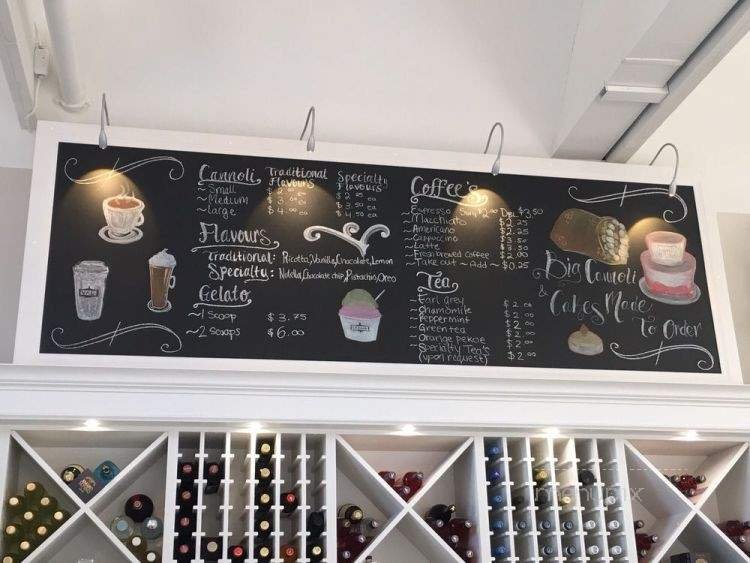 Cannoli Traditional Flavours Specialty Flavours
~Small $2.00 ea
~Medium $3.00 ea $3.50 ea
~large $4.00 ea $4.50 ea
Flavours
Traditional: Ricotta, Vanilla, Chocolate, Lemon
Specialty: Nutella, Chocolate chip, Pistachio, Oreo
Gelato
~1 Scoop $3.75
~2 Scoops $6.00
Coffee's
~Espresso $2.00 $3.50
~Macchiato $2.25
~Americano $2.25
~Cappuccino $3.50
~Latte $3.50
~Fresh brewed coffee $2.00
~Take out ~ Add ~ $0.25
Tea
~Earl grey $2.00
~Chamomile $2.00
~Peppermint $2.00
~Green tea $2.00
~Orange pekoe $2.00
~Specialty Tea's $2.00
(upon request)
Big Cannoli
& Cakes Made
To Order